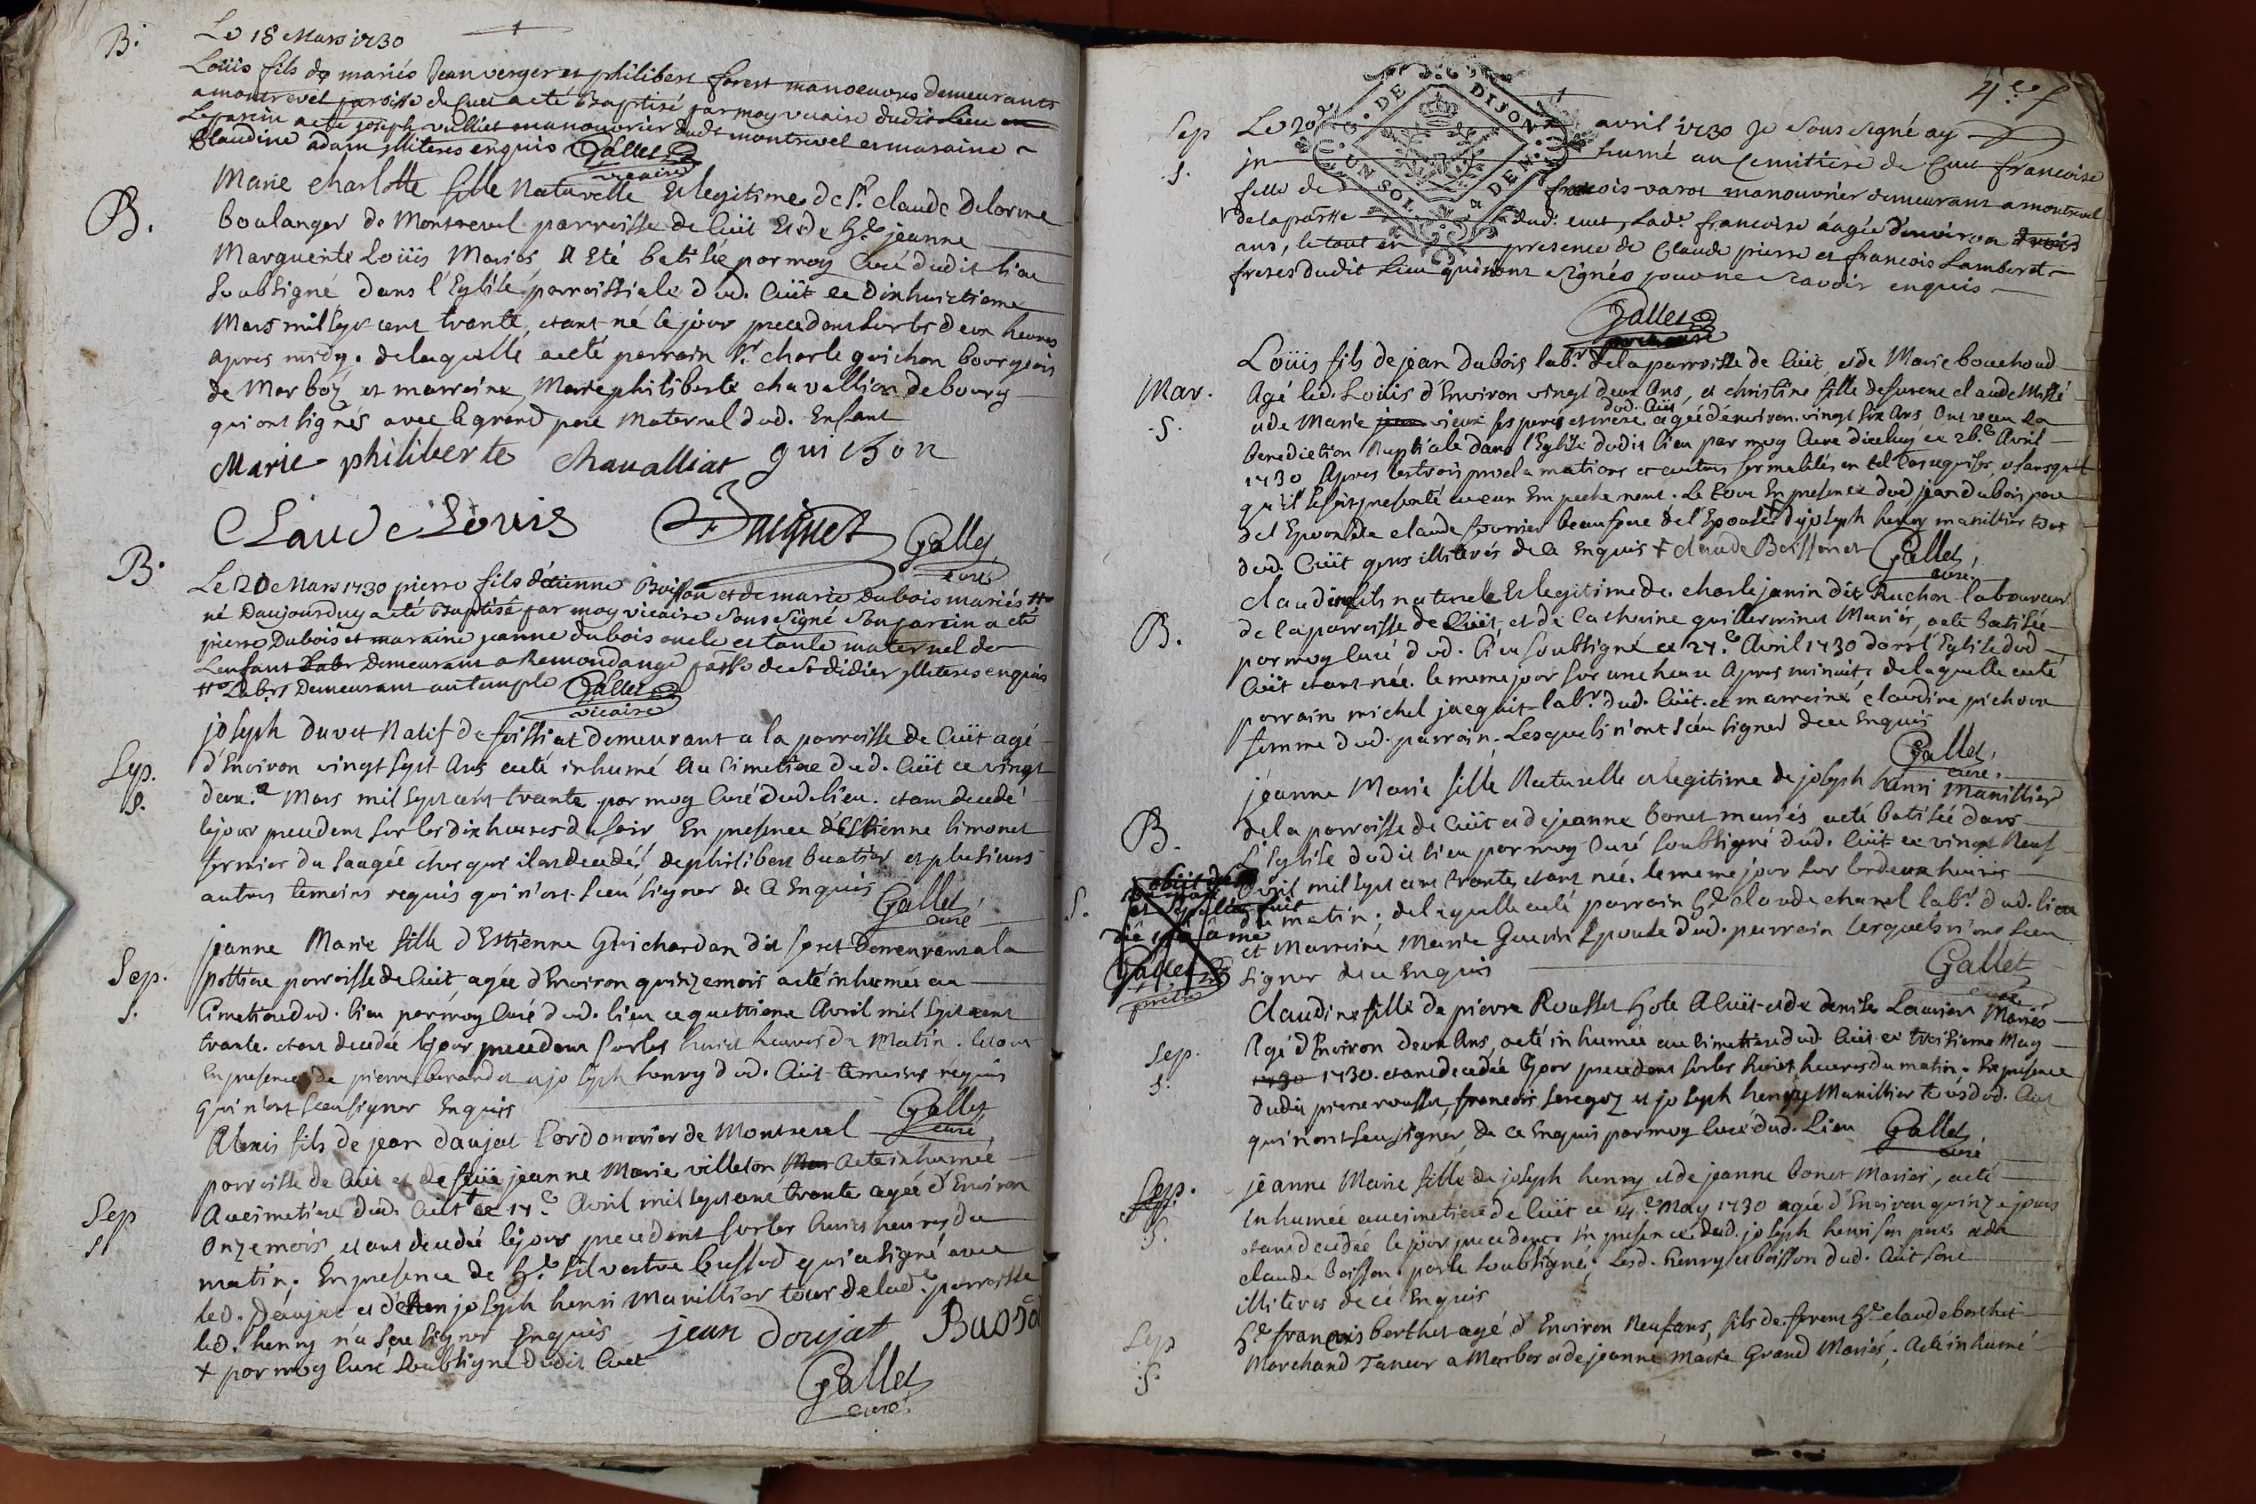 B.
Le 18 Mars 1730
Loüis fils de mariés Jean verger et philibert forest manoeuvres demeurants
a montrevel paroisse de Cuet a eté Baptisé par moy vicaire dudit Lieu
Le parein a eté joseph vulliet manouvrier dudt montrevel et maraine
Claudine adam illiteres enquis Gallet
vicaire
B.
Marie charlotte fille Naturelle Et legitime de Sr. claude Delorme
boulanger de Montrevel parroisse de Cüit Et de he jeanne
Marguerite Loüis Mariés A Eté batisée par moy Curé dudit lieu
Soubsigné dans l'Eglise parroissiale dud. Cüit ce dixhuictieme
Mars mil sept cent trante, etant né le jour precedent sur les deux heures
apres midy. de laquelle a eté parrain Sr. charle guichon bourgeois
de Marboz et marraine Marie philiberte chavallion de bourg
qui ont signés avec le grand pere Maternel dud. Enfant
Marie philiberte Chaualliat guichon
Claude Louis Gallet
curé
B.
Le 20e Mars 1730 pierre fils d'étienne Boisson et de marie Dubois mariés
né Daujourduy a eté Baptisé par moy vicaire Soussigné Son parein a eté
pierre Dubois et maraine jeanne dubois oncle et tante maternel de
Lenfant Labr Demeurant a Remondange passe de St didier illiteres enquis
Labrs Demeurant au temple Gallet
vicaire
Sep.
S.
joseph duvet Natif de foissiat demeurant a la parroisse de Cüit agé
d'Environ vingt sept Ans a eté inhumé Au Cimetiere dud. Cüit ce vingt
deux.e Mars mil sept cent trante par moy Curé dud. lieu. etant decedé
le jour precedent sur les dix heures du soir En presence d'Estienne limonet
fermier du saugée chez qui il est decedé, de philibert buatier et plusieurs
autres temoins requis qui n'ont sceu signer de ce Enquis Gallet
curé
Sep.
S.
jeanne Marie fille d'Estienne Guichardan dit foret Demeurant a la
pottiere parroisse de Cüit, agée d'Environ quinze mois a eté inhumée au
Cimetiere dud. lieu par moy Curé dud. lieu ce quattrieme Avril mil sept cent
trante. etant decedée le jour precedent sur les huict heures du Matin. le tout
En presence de pierre berardet et joseph henry dud. Cüit temoins requis
qui n'ont sceu signer Enquis
Gallet
curé
Sep
S
Alexis fils de jean daujat Cordonnier de Montrevel
parroisse de Cüit et de feüe jeanne Marie villeton a eté inhumée
Au cimetiere dud. Cüit ce 17.e Avril mil sept cent trante agée d'Environ
Onze mois, etant decedée le jour precedent sur les huict heures du
matin. En presence de he. silvestre bussod qui a signé avec
led. Daujat et de joseph henri Manillier tous de lad.e parroisse
led. henry n'a sceu signer Enquis jean doujat Bussod
+ par moy Curé Soubsigné dudit Cuet
Gallet
curé.
4e f
Sep
S.
Le 20e avril 1730 Je Sous signé ay
in humé au Cemitiere de Cuet francoise
fille de francois varot manouvrier demeurant a montrevel
de la parsse dud. cuet, Lade. francoise áagée d'environ trois
ans, le tout en presence de Claude pierre et francois Lamberet
freres dudit Lieu qui n'ont signés pour ne scavoir enquis
G. DE DIJON
UN SOL DEM
Gallet
Mar.
S.
Loüis fils de jean dubois labr. de la parroisse de Cüit, et de Marie bouchoud
Agé led. Louis d'Environ vingt deux Ans, et christine fille de furent claude Missé
et de Marie jean vieux ses peres et mere dud. Cüit agée d'environ vingt six Ans Ont receu La
benediction Nuptiale dans l'Eglise dudit lieu par moy Curé diceluy ce 26.e Avril
1730 Apres les trois proclamations et autres formalités en tel cas requises, et sans quil
qu'il se soit presenté aucun Empechement. Le tout En presence dud. jean dubois pere
del Epoux de claude fourrier beaufrere de l'Epousée de joseph henry manillier tous
dud. Cüit gens illiterés de ce Enquis + claude Boissonet Gallet
curé.
B.
claudine fils naturele Et legitime de. charle janin dit Ruchon laboureur
de la parroisse de Cüit, et de Catherine guillerminet Mariés, a ete batisée
par moy Curé dud. lieu soubsigné ce 27.e Avril 1730 dans l'Eglise dud.
Cüit etant née. le meme jour sur une heure Apres minuit; de laquelle a eté
parrain michel jacquit labr. dud. Cüit. et marraine claudine pichoux
femme dud. parrain. Lesquels n'ont sceu signer de ce Enquis
Gallet
curé.
B.
jeanne Marie fille Naturelle et legitime de joseph henri Manillier
de la parroisse de Cüit et de jeanne bonet mariés a eté batisée dans
L'Eglise dudit lieu par moy Curé soubsigné dud. Cüit ce vingt Neuf
Avril mil sept cent trante, etant née. le meme jour sur les deux heures
du matin; de laquelle a eté parrain he. claude chanel labr. dud. lieu
et Marraine Marie Guerin Epouse dud. parrain Lesquels n'ont sceu
signer de ce Enquis
Gallet
curé
S.
Gallet
Sep.
S.
Claudine fille de pierre Rousset hote A Cüit et de denise Laurier Mariés
Agé d'Environ deux Ans, a eté inhumée au cimetiere dud. Cüit ce troisieme May
1730 1730. etant decedée le jour precedent sur les huict heures du matin. En presence
dudit pierre rousset, francois feregoz et joseph henry Manillier tous dud. Cüit
qui n'ont sceu signer de ce Enquis par moy Curé dud. Lieu Gallet
curé
Sep.
S.
jeanne Marie fille de joseph henry et de jeanne bonet Mariés, a eté
Inhumée au cimetiere de Cüit ce 14.e May 1730 agée d'Environ quinze jours
etant decedée le jour precedent. En presence dud. joseph henri son pere et de
claude boisson. par le soubsigné; Lesd. henry et boisson dud. Cüit sont
illiteres de ce Enquis
Sep
S.
he. francois berthet agé d'Environ Neuf ans, fils de furent he. claude berthet
Marchand Taneur a Marbos et de jeanne Marie Grand Mariés; A eté inhumé